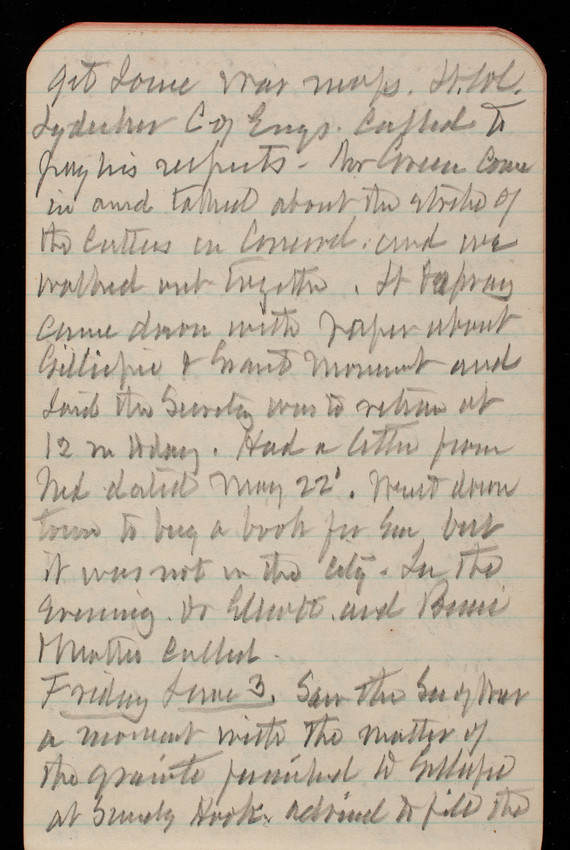 get some war maps. Lt. Col.
Lydecker C of Engs. called to
pay his respects - Mr Green came
in and talked about the strike of
the cutters in Concord. and we
walked out together. Lt
came down with paper about
Gillespie & Grant Monument and
said the Secretary was to return at
12 m today. Had a letter from
Ned dated May 22'. Went down
town to buy a book for Em but
it was not in the city. In the
Evening. Dr Elliott and
called.
Friday June 3. Saw the Sec of War
a moment with the matter of
the granite furnished to Gillespie
at Sandy Hook. advised to file the